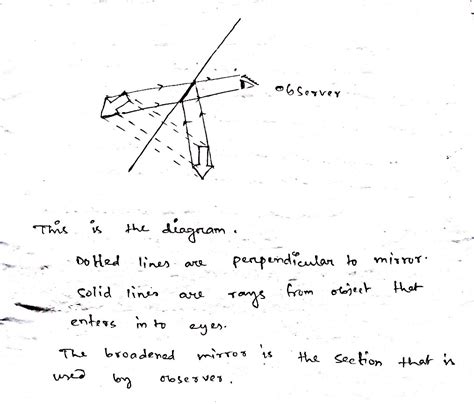 observer
This is the diagram.
Dotted lines are perpendicular to mirror.
Solid lines are rays from object that
enters in to eyes.
The broadened mirror is the section that is
used by observer.